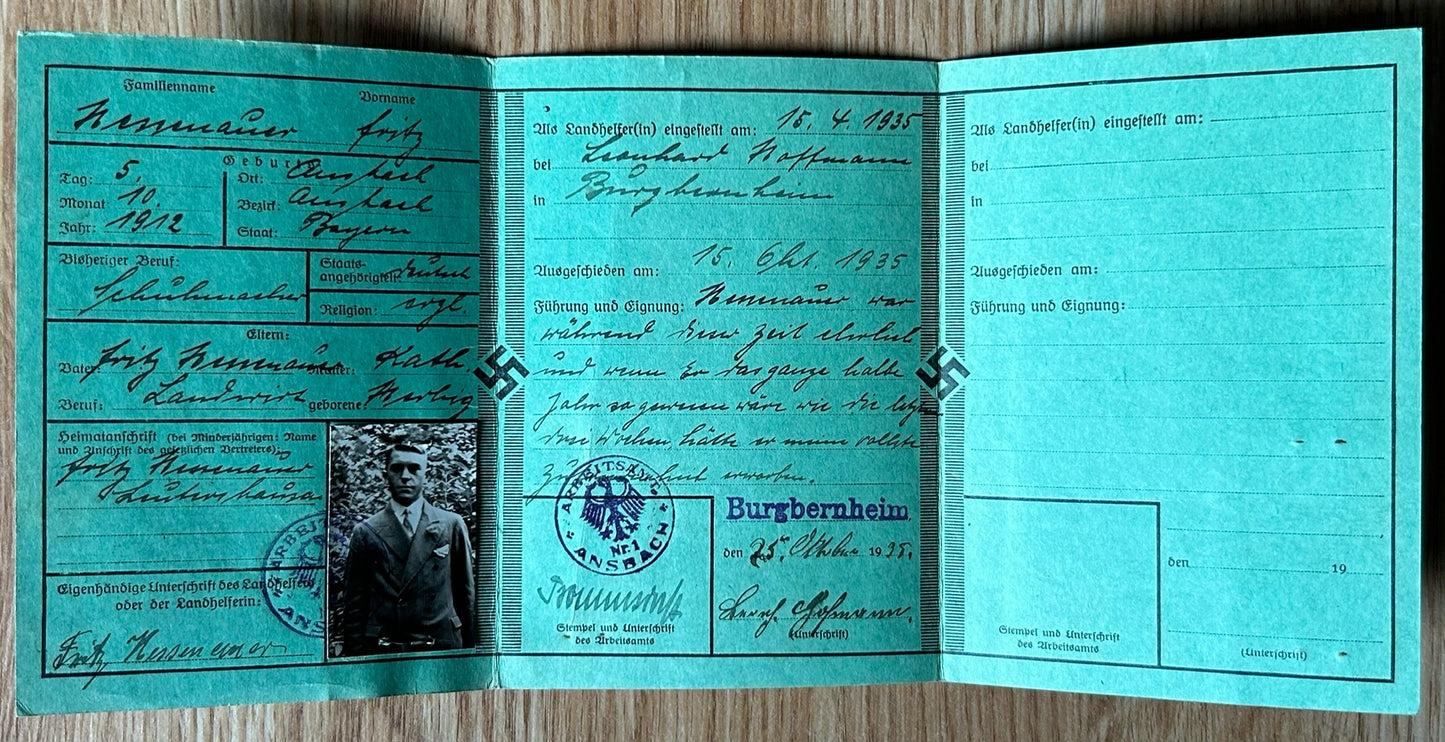 Familienname
Vorname
Fritz
Geburts
Tag: 5.
Ort: Ansbach
Monat: 10.
Bezirk: Ansbach
Jahr: 1912
Staat: Bayern
Bisheriger Beruf:
Schuhmacher
Staats-
angehörigkeit: deutsch
Religion: evgl.
Eltern:
Vater: Fritz
Mutter: Kath.
Beruf: Landwirt
geborene:
Heimatanschrift (bei Minderjährigen: Name
und Anschrift des gesetzlichen Vertreters):
Fritz
Leutershausen
Eigenhändige Unterschrift des Landhelfers
oder der Landhelferin:
Fritz
ARBEITS
ANS
Als Landhelfer(in) eingestellt am: 15. 4. 1935
bei Leonhard Hoffmann
in Burgbernheim
Ausgeschieden am: 15. Okt. 1935
Führung und Eignung: war
während dieser Zeit ehrlich
und wenn Er das ganze halbe
Jahr so gewesen wäre wie die letzten
drei Wochen, hätte er meine vollste
erworben.
ARBEITSAMT
Nr. 1
ANSBACH
Burgbernheim
den 25. Oktober 1935.
(Unterschrift)
Stempel und Unterschrift
des Arbeitsamts
Als Landhelfer(in) eingestellt am:
bei
in
Ausgeschieden am:
Führung und Eignung:
den 19
Stempel und Unterschrift
des Arbeitsamts
(Unterschrift)